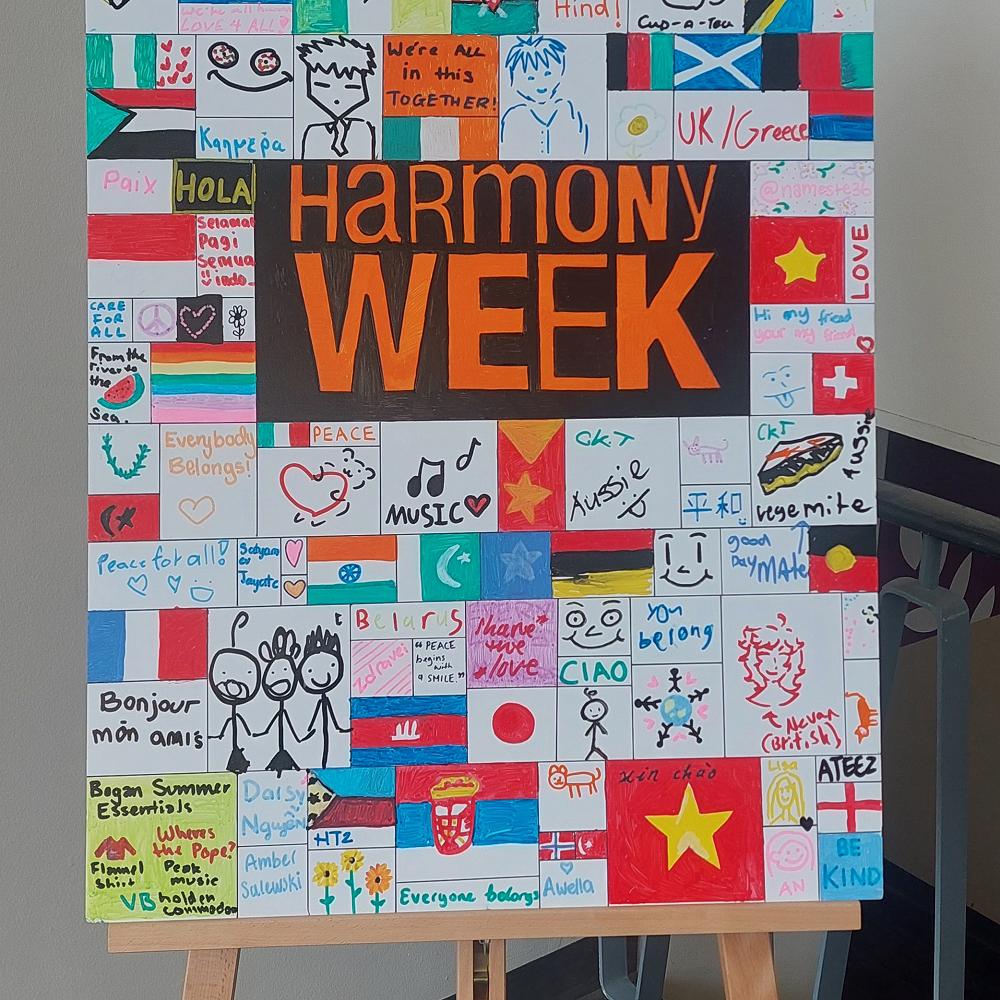 we're all human
LOVE 4 ALL!
Hind!
Cup-a-Tea
We're ALL
in this
TOGETHER!
Καημερα
UK/Greece
Paix
HOLA
HARMONY
WEEK
@nameste36
Selamat
Pagi
Semua
indo
LOVE
CARE
FOR
ALL
Hi my friend
your my friend
From the
river to
the
Sea.
Everybody
Belongs!
PEACE
MUSIC
CKT
Aussie
平和
CKT
Aussie
vegemite
Peace for all!
Satyam
ev
Jayate
good
Day MAte
Belarus
zdravei
"PEACE
begins
with
a SMILE."
Share
the
love
CIAO
You
belong
Bonjour
mon amis
Nevan
(British)
Bogan Summer
Essentials
Wheres
the Pope?
Flannel
shirt
Peak
music
VB
holden
commodore
Daisy
Nguyen
Amber
Salewski
HTZ
Everyone belongs
Awella
xin chào
Lisa
AN
ATEEZ
BE
KIND